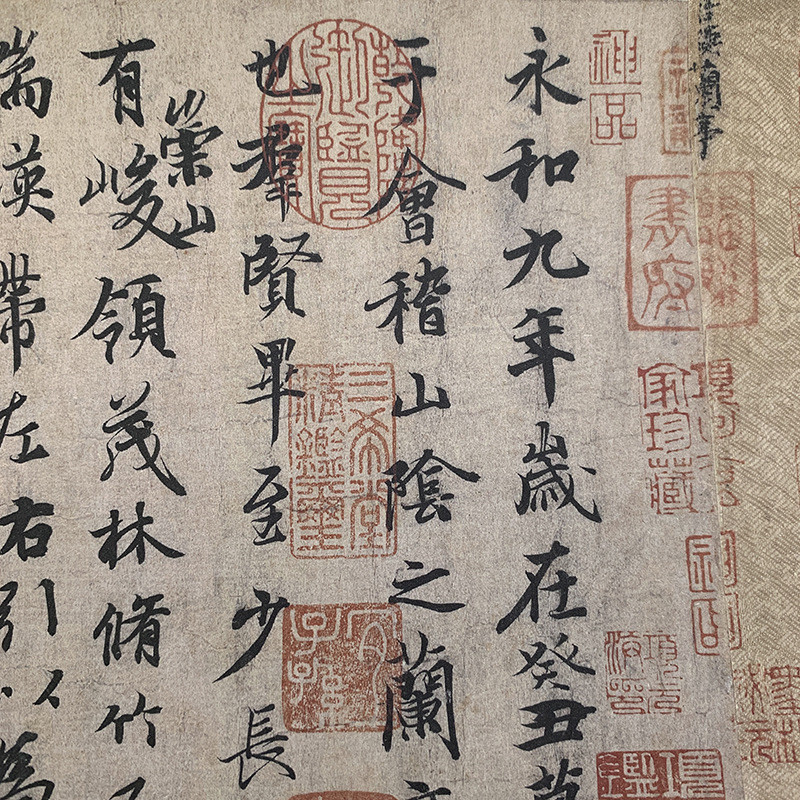 蘭亭
神品
永和九年歲在癸丑
于會稽山陰之蘭
也羣賢畢至少長
有崇山峻領茂林脩竹
帶左右引以為
書府
家珍藏
三希堂精鑑璽
宜子孫